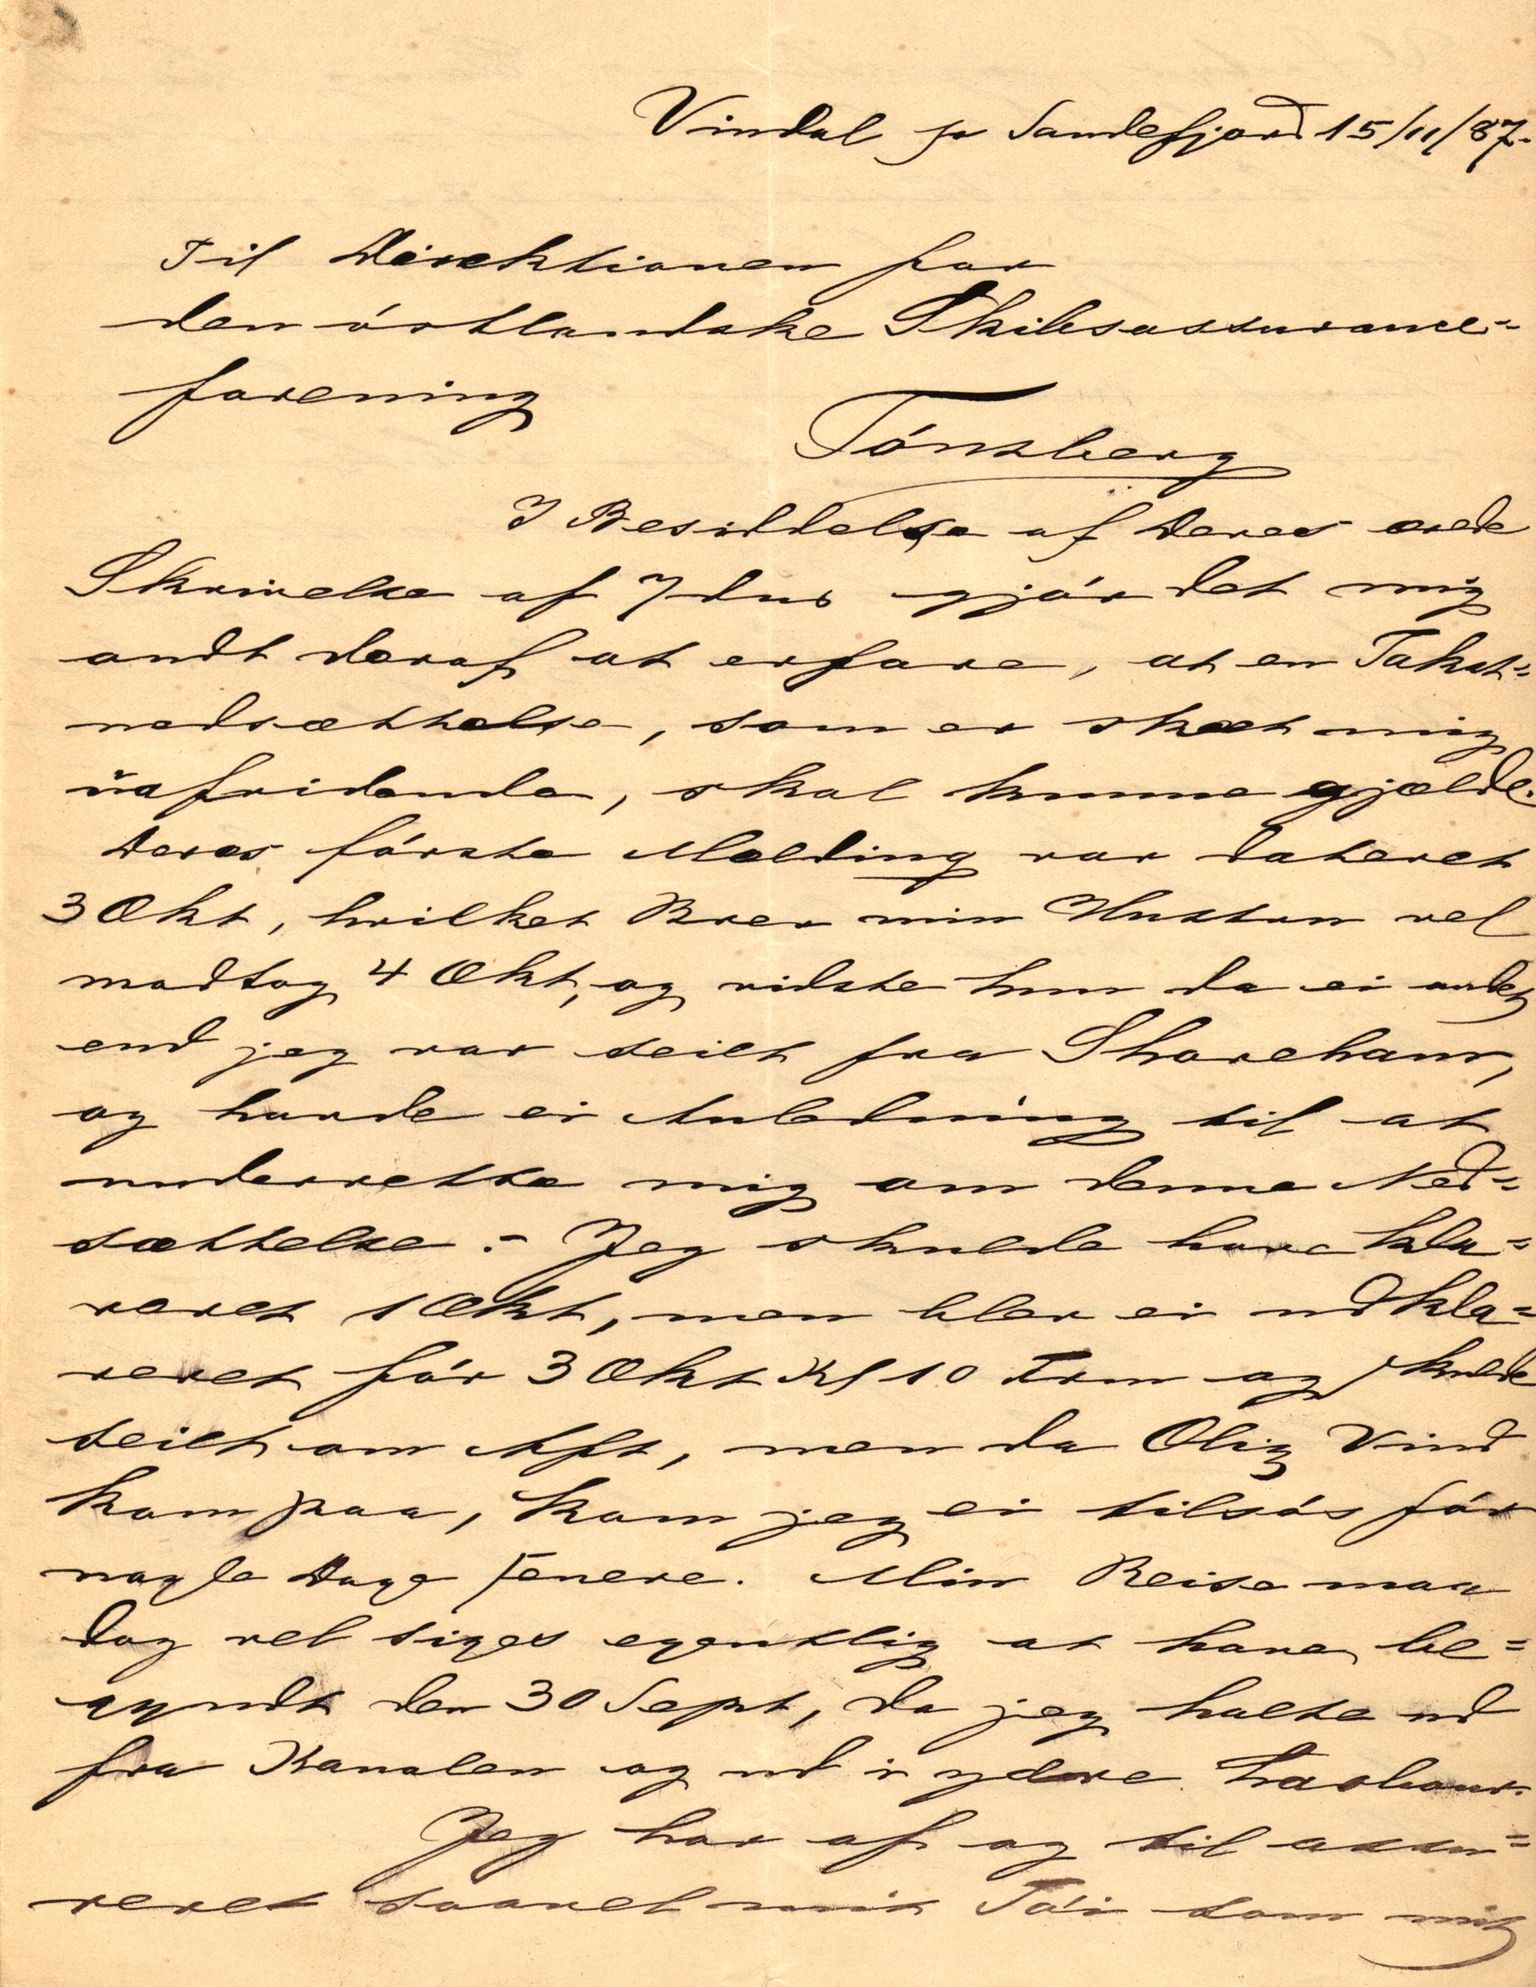 Vindal pr Sandefjord 15/11/87.
Til Direktionen for
den östlandske Skibsassurance=
forening
Tönsberg
I Besiddelse af Deres ærede
Skrivelse af 7 dns gjör det mig
ondt deraf at erfare, at en Takst=
nedsættelse, som er skeet mig
uafvidende, skal kunne gjælde.
Deres förste Melding var dateret
3 Okt, hvilket Brev min Hustru vel
modtog 4 Okt, og vidste hun da ei andet
end jeg var seilt fra Shoreham,
og havde ei Anledning til at
underrette mig om denne Ned=
sættelse. - Jeg skulde have kla=
reret 1 Okt, men blev ei udkla=
reret för 3 Okt Kl 10 Frm og skulde
seilt om Aft, men da Ølig Vind
kom paa, kom jeg ei tilsös för
nogle Dage senere. Min Reise maa
dog vel siges egentlig at have be=
gyndt den 30 Sept, da jeg halte ud
fra Kanalen og ud i ydere Harbour.
Jeg har af og til assu=
reret saavel mit Töi som mit